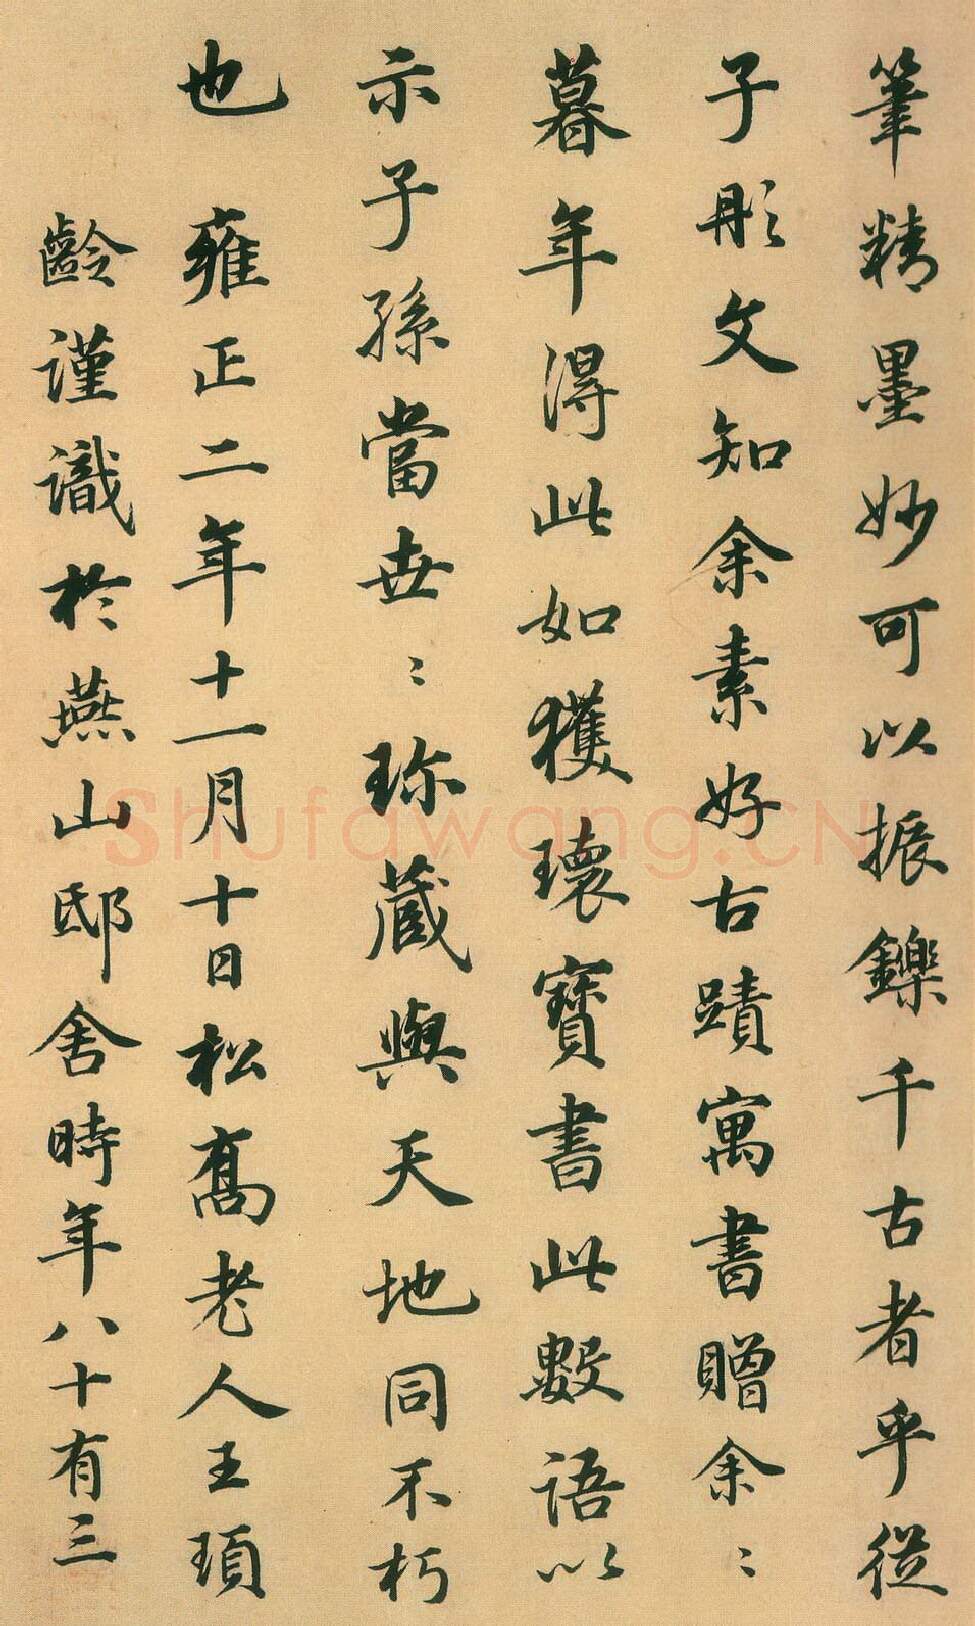 筆精墨妙可以振鑠千古者乎從
子彤文知余素好古蹟寓書贈余〻
暮年得此如獲瓌寶書此數語以
示子孫當世〻珎藏與天地同不朽
也 雍正二年十一月十日松高老人王頊
齡謹識於燕山邸舍時年八十有三
Shufawang.CN